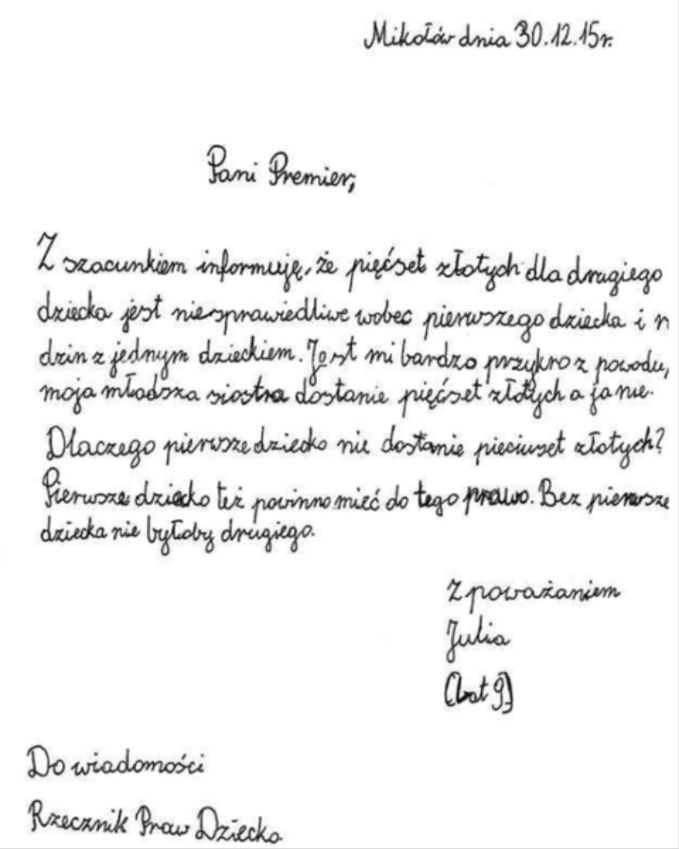 Mikołów dnia 30.12.15r.
Pani Premier,
Z szacunkiem informuję, że pięćset złotych dla drugiego
dziecka jest niesprawiedliwe wobec pierwszego dziecka i r
dzin z jednym dzieckiem. Jest mi bardzo przykro z powodu,
moja młodsza siostra dostanie pięćset złotych a ja nie.
Dlaczego pierwsze dziecko nie dostanie pięciuset złotych?
Pierwsze dziecko też powinno mieć do tego prawo. Bez pierwsze
dziecka nie byłoby drugiego.
Z poważaniem
Julia
(lat 9)
Do wiadomości
Rzecznik Praw Dziecka